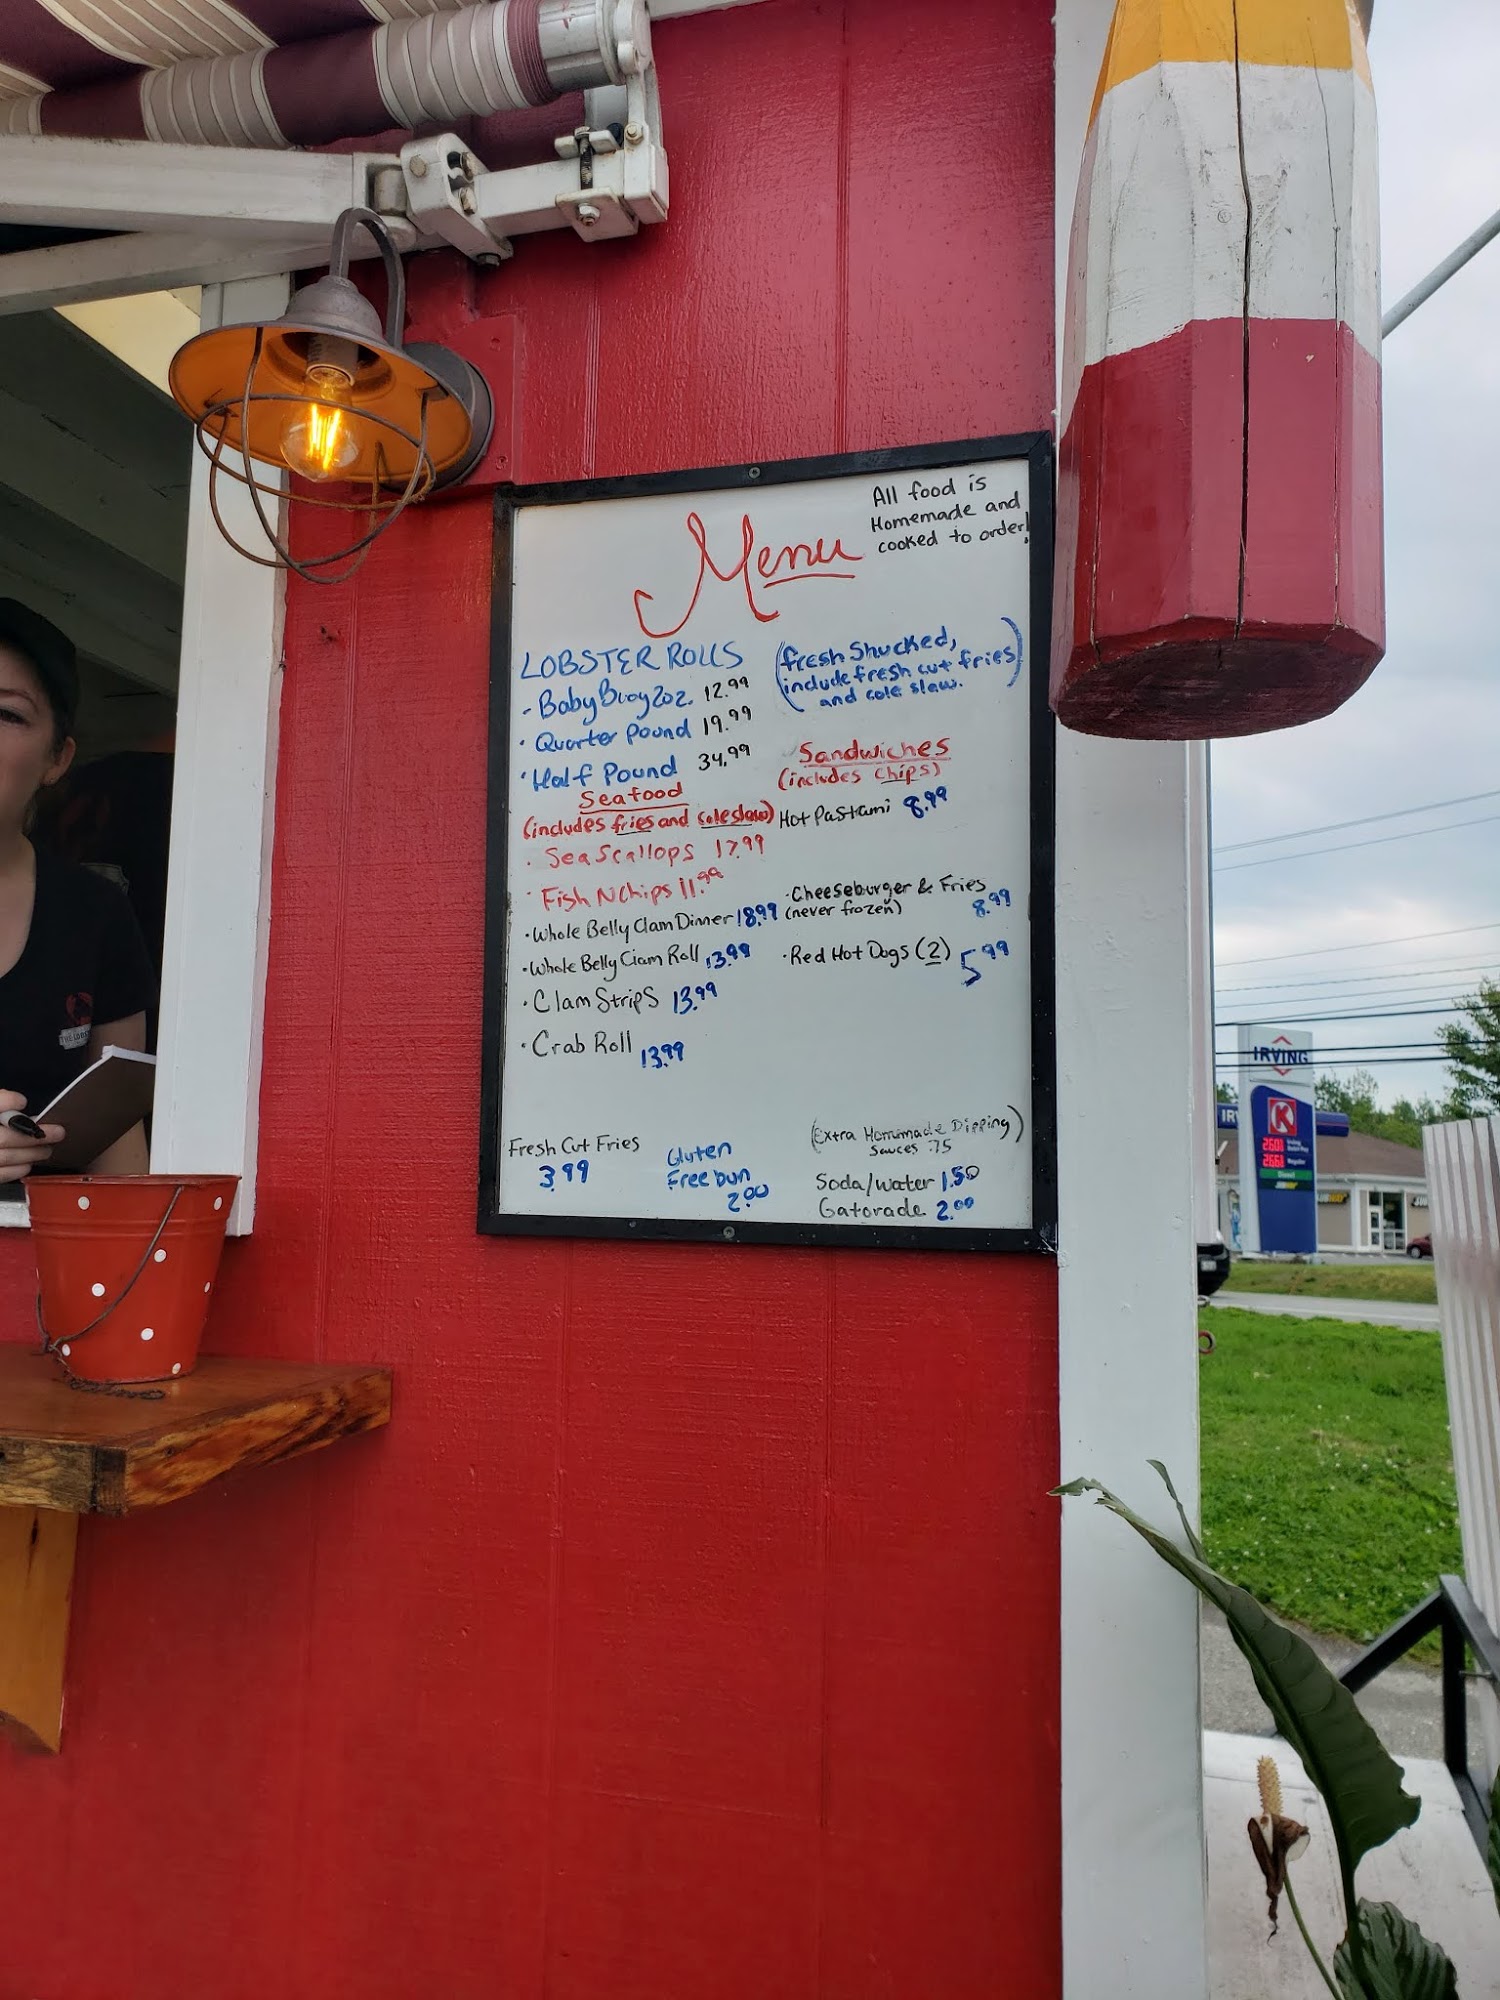 All food is
Homemade and
cooked to order!
Menu
LOBSTER ROLLS
- Baby Buoy 2oz. 12.99
· Quarter Pound 19.99
· Half Pound 34.99
(fresh Shucked,
include fresh cut fries
and cole slaw.)
Seafood
(includes fries and coleslaw)
· Sea Scallops 17.99
· Fish N Chips 11.99
· Whole Belly Clam Dinner 18.99
· Whole Belly Clam Roll 13.99
· Clam Strips 13.99
· Crab Roll 13.99
Sandwiches
(includes chips)
Hot Pastrami 8.99
· Cheeseburger & Fries
(never frozen) 8.99
· Red Hot Dogs (2) 5.99
Fresh Cut Fries
3.99
Gluten
Free bun
2.00
(Extra Homemade Dipping)
Sauces .75
Soda/water 1.50
Gatorade 2.00
IRVING
K